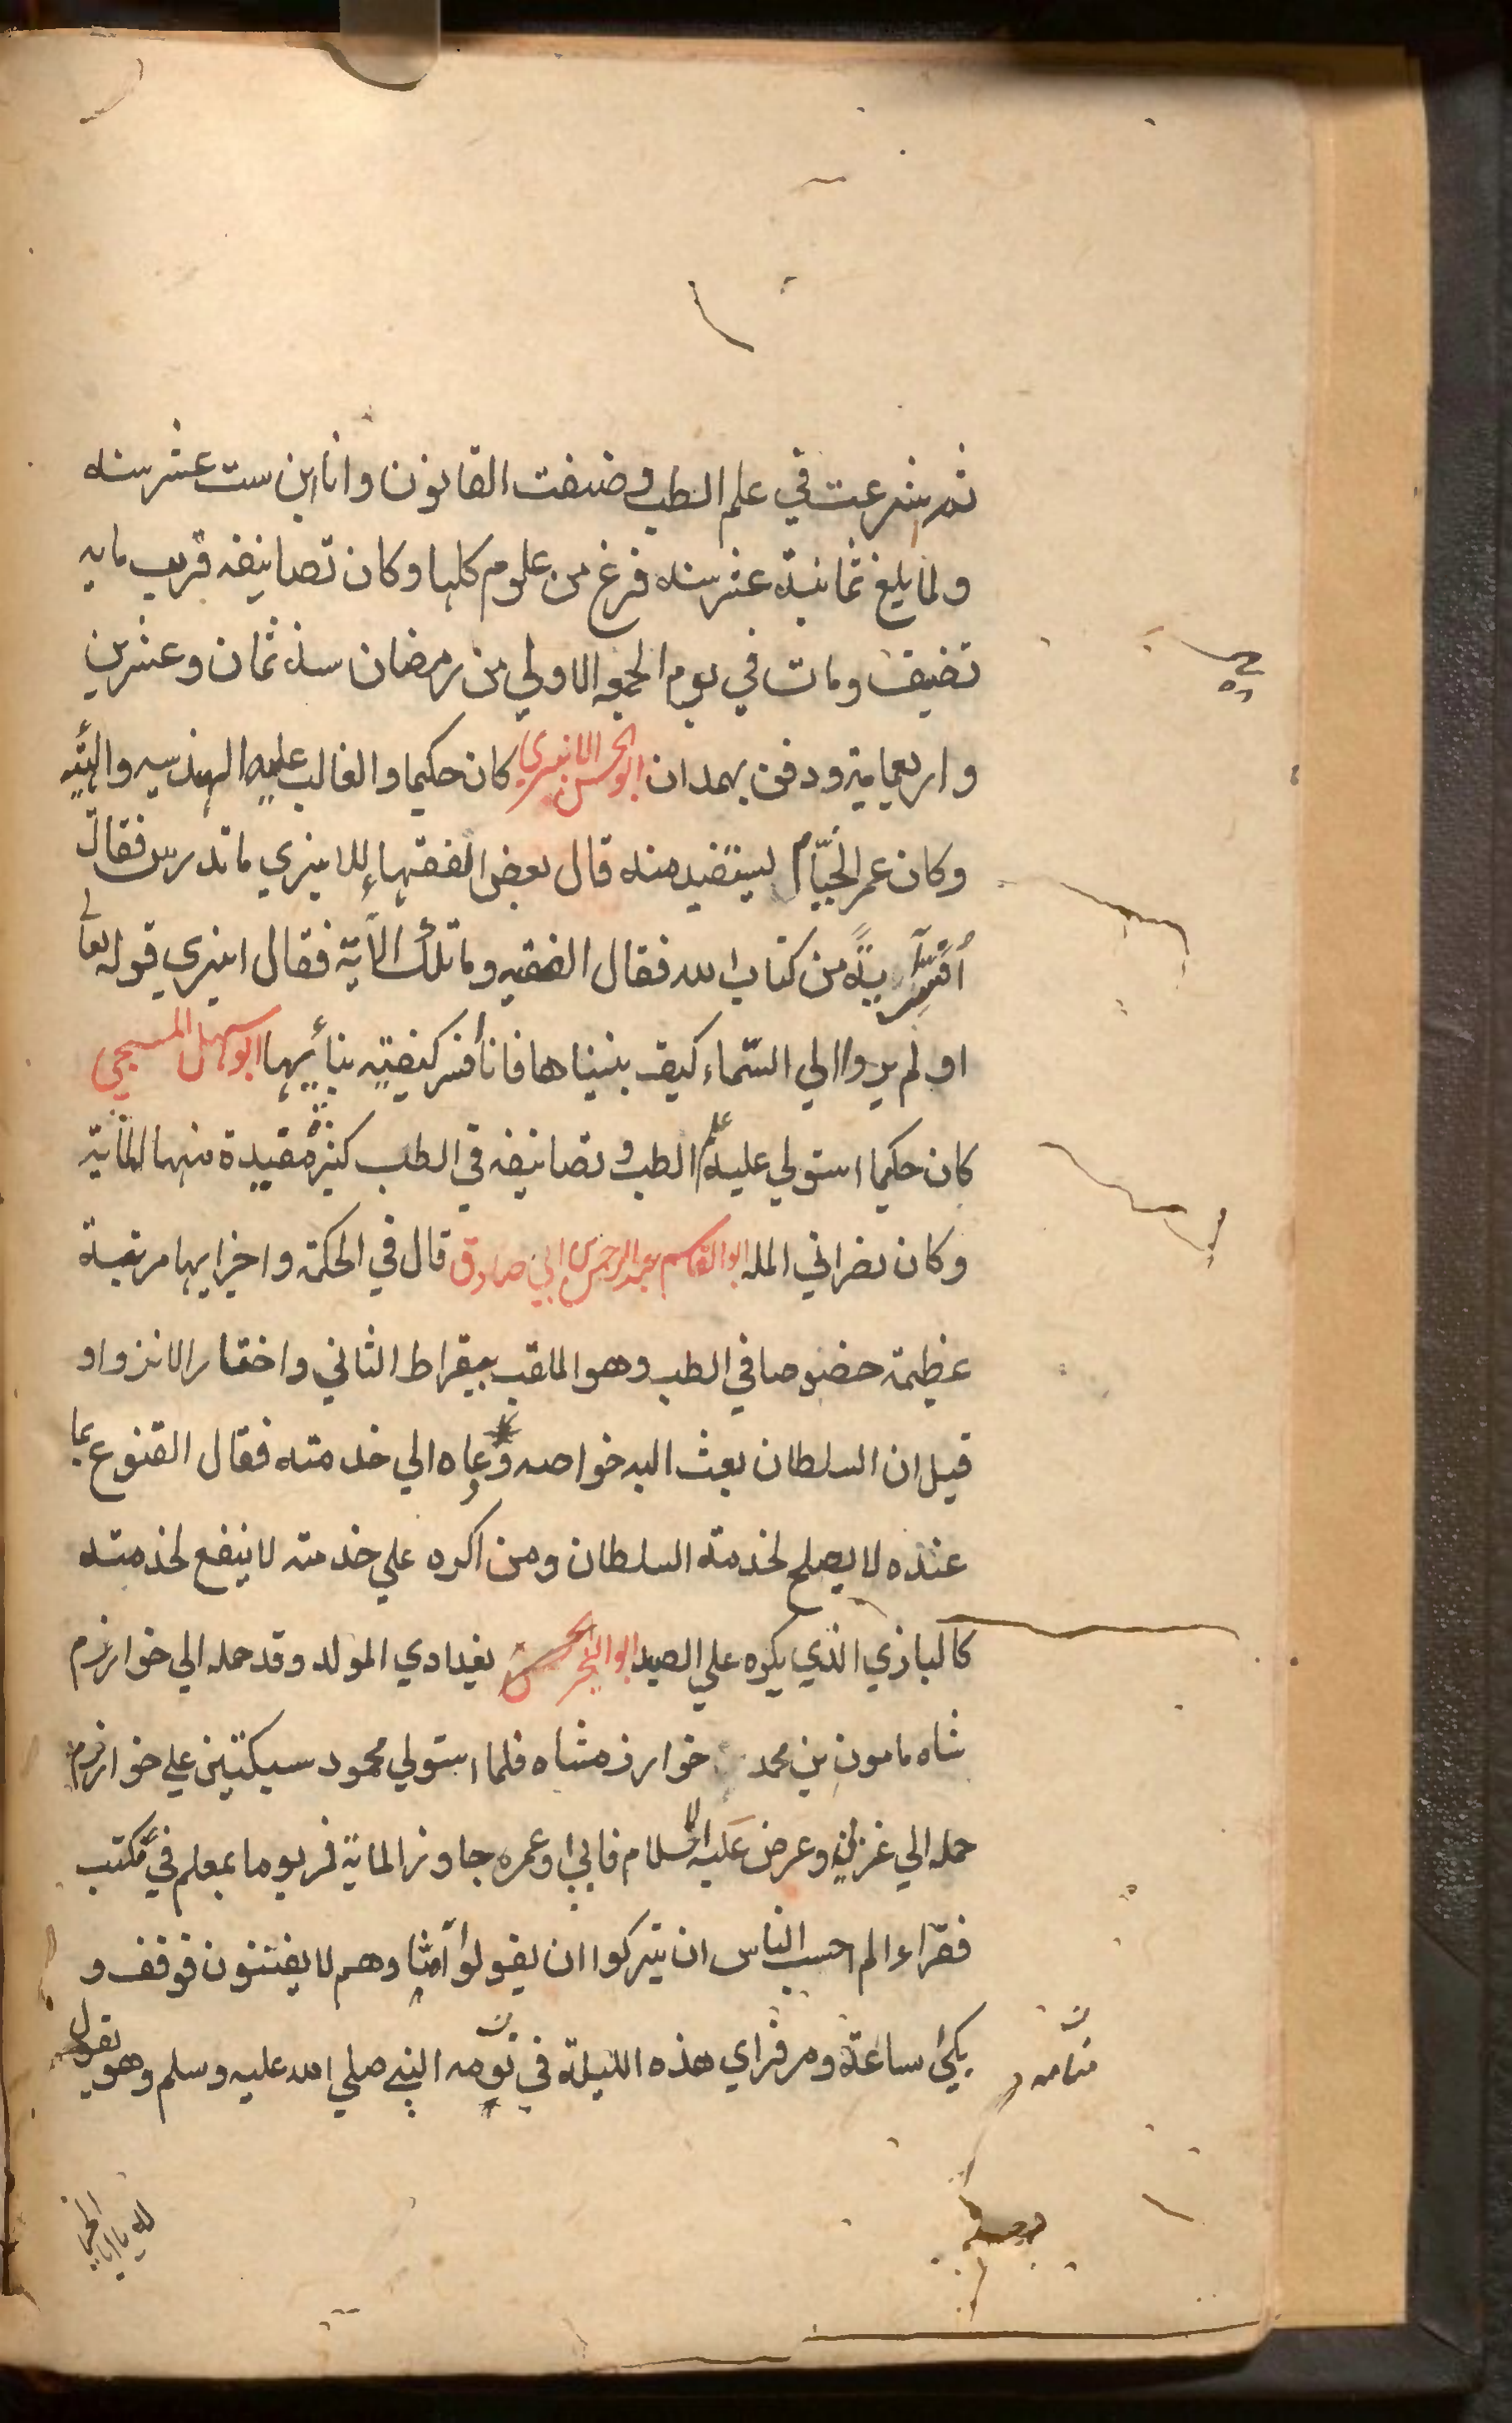 ثم شرعت في علم الطب وصنفت القانون وانا ابن ست عشر سنه
ولما بلغ ثمانية عشر سنه فرغ من علوم كلها وكان تصانيفه قريب مايه
تصنيف ومات في يوم الجمعه الاولي من رمضان سنة ثمان وعشرين
واربعماية ودفن بهمدان ابوالحسن الانبيري كان حكيما والغالب عليه الهندسيه والهيئة
وكان عمر الخيّام ليستفيد منه قال بعض الفقهاء للانبيري ما تدرس فقال
أفسّر آيةً من كتاب الله فقال الفقيه وما تلك الآية فقال انبيري قوله تعالي
اولم يروا الي السّماء كيف بنيناها فانا أفسر كيفيّته بنائيها ابوسهل المسيحي
كان حكيما استولي عليه علم الطب وتصانيفه في الطب كثيرة مفيدة منها المأية
وكان نصراني المله ابوالقاسم عبدالرحمن بن ابي صادق قال في الحكمة واخرايها مرتبة
عظيمة خصوصا في الطب وهو الملقب ببقراط الثاني واختار الانزواو
قيل ان السلطان بعث اليه خواصه ودعاه الي خدمته فقال القنوع بما
عنده لا يصلح لخدمة السلطان ومن اكره علي خدمته لا ينفع لخدمته
كالبازي الذي يكره علي الصيد ابوالخير الحسن بغدادي المولد وقد حمله الي خوارزم
شاه مامون بن محمد خوارزمشاه فلما استولي محمود سبكتين علي خوارزم
حمله الي غزنين وعرض عليه الاسلام فابي وعمره جاوز الماية فمر يوما بمعلم في مكتب
فقراء الم احسب الناس ان يتركوا ان يقولوا آمنا وهم لا يفتنون فوقف و
بكي ساعة ومر فراي هذه الليلة في نومه النبي صلي الله عليه وسلم وهو يقول
منامه
له يا ابا الخير